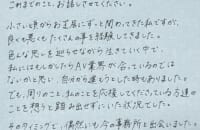 これまでのこと、お話しさせてください。
小さい頃からお芝居にずっと関わってきた私ですが、
良くも悪くもたくさんの事を経験してきました。
色んな思いを巡らせながら生きていく中で、
私にはもしかしたらAV業界が合っているのでは
ないかと思い、自分から連絡をとった時もありました。
でも、周りのこと、私のことを応援してくださっている方達の
ことを想うと踏み出せずにいた状況でした。
そのタイミングで、偶然にも今の事務所と出会いました。